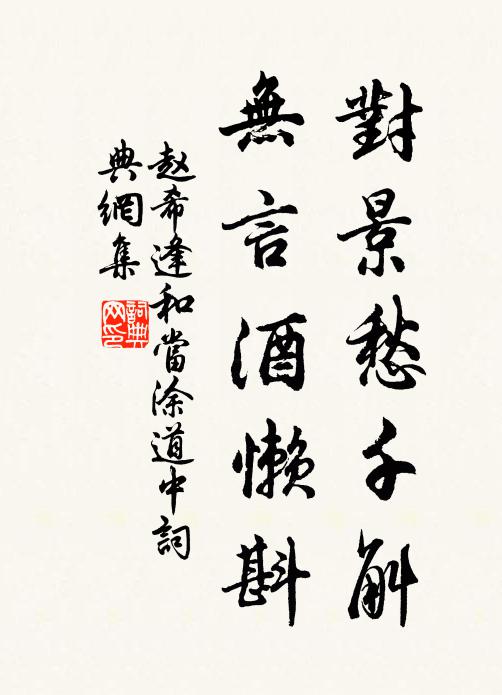 對景愁千斛
無言酒懶斟
赵希逢和當涂道中詞
典網集
詞典
网印